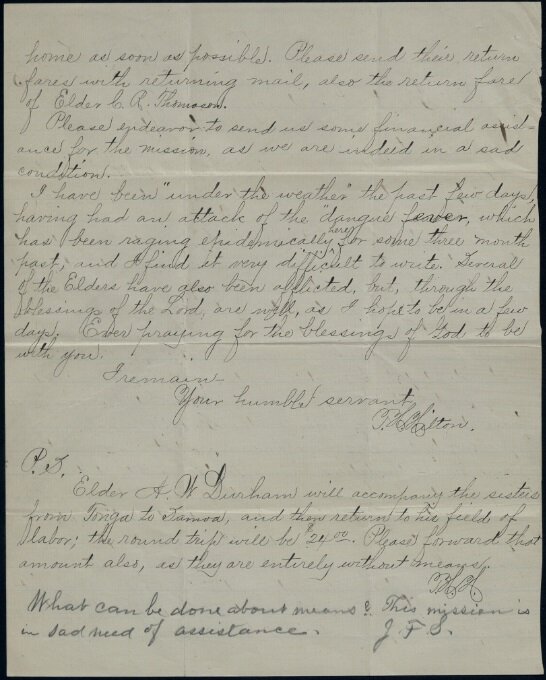 home as soon as possible. Please send their return
fares with returning mail, also the return fare
of Elder C. R. Thomason.
Please endeavor to send us some financial assist-
ance for the mission, as we are indeed in a sad
condition.
I have been "under the weather" the past few days,
having had an attack of the dangue fever, which
has been raging epidemically here for some three month
past, and I find it very difficult to write. Several
of the Elders have also been afflicted, but, through the
blessings of the Lord, are well, as I hope to be in a few
days. Ever praying for the blessings of God to be
with you.
I remain
Your humble servant,
T. H. Hilton.
P.S.
Elder A. W. Durham will accompany the sisters
from Tonga to Samoa, and then return to his field of
labor; the round trip will be $24.00. Please forward that
amount also, as they are entirely without means.
T.H.H.
What can be done about means? This mission is
in sad need of assistance. J. F. S.